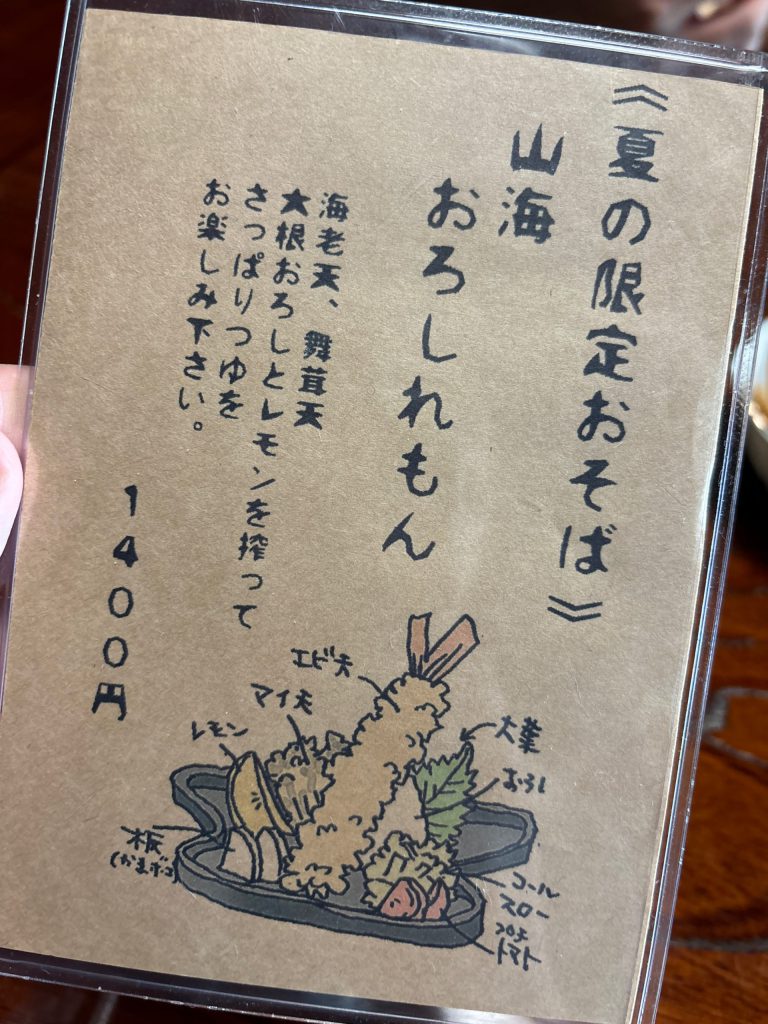 《夏の限定おそば》
山海
おろしれもん
海老天、舞茸天
大根おろしとレモンを搾って
さっぱりつゆを
お楽しみ下さい。
1400円
エビ天
マイ天
レモン
大葉
おろし
木反
(かまボコ)
コール
スロー
トマト